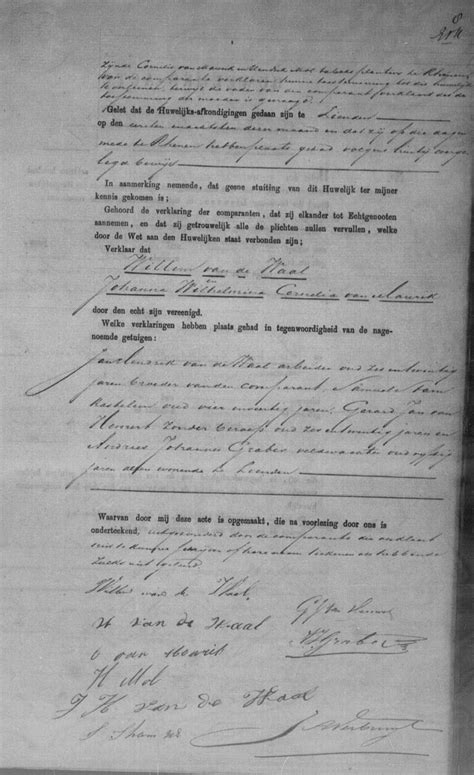 8
Zijnde Cornelis van Maurik en Hendrika Mol
van de comparante verklaren hunne toestemming tot dit huwelijk
te geven, terwijl de vader van den comparant
toestemming der moeder is
Gelet dat de Huwelijks-afkondigingen gedaan zijn te Lienden
op den eersten en achtsten dezer maand en dat zij op die dagen
mede te Rhenen hebben plaats gehad volgens
bewijs
In aanmerking nemende, dat geene stuiting van dit Huwelijk ter mijner
kennis gekomen is;
Gehoord de verklaring der comparanten, dat zij elkander tot Echtgenooten
aannemen, en dat zij getrouwelijk alle de plichten zullen vervullen, welke
door de Wet aan den Huwelijken staat verbonden zijn;
Verklaar dat
Willem van de Waal
en
Johanna Wilhelmina Cornelia van Maurik
door den echt zijn vereenigd.
Welke verklaringen hebben plaats gehad in tegenwoordigheid van de nage-
noemde getuigen:
Jan Hendrik van de Waal arbeider oud zes en twintig
jaren broeder van den comparant, Samuel Stam
kastelein oud vier en veertig jaren, Gerard Jan van
Hemert zonder beroep oud zes en twintig jaren en
Andries Johannes Grabes veldwachter oud
jaren allen wonende te Lienden
Waarvan door mij deze acte is opgemaakt, die na voorlezing door ons is
onderteekend, uitgezonderd door de comparante die
schrijven of haar naam teekenen
zulks niet geleerd.
Willem van de Waal
H van de Waal
C van Maurik
H Mol
J H van de Waal
S Stam
G J van Hemert
A J Grabes